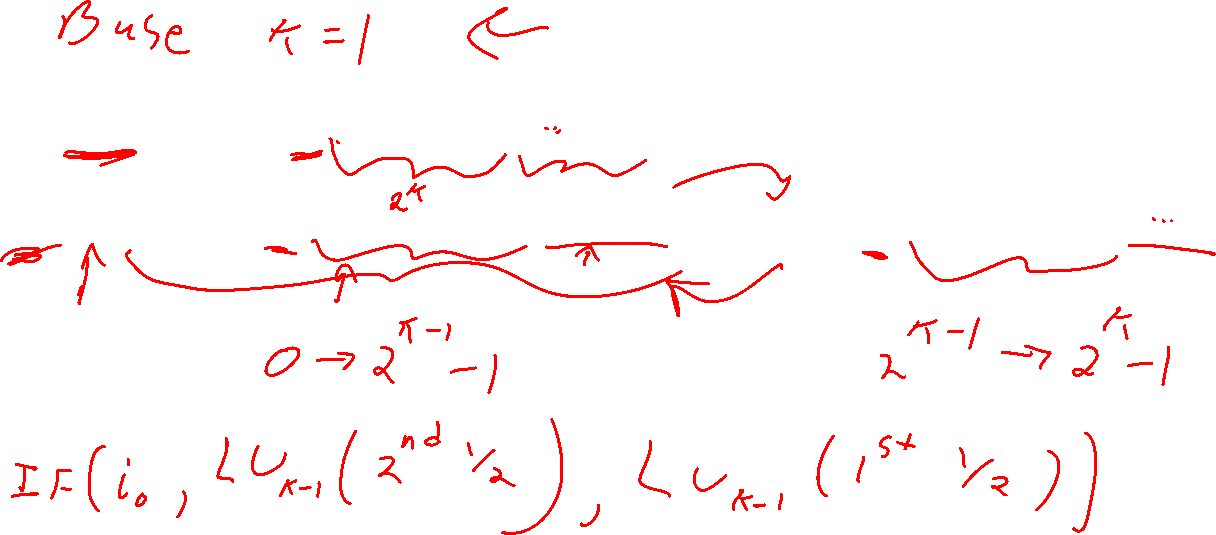 Base K = 1 ←
...
2^K
...
0 → 2^{K-1} - 1
2^{K-1} → 2^K - 1
IF(i_0, LU_{K-1}(2^{nd} 1/2), LU_{K-1}(1^{st} 1/2))